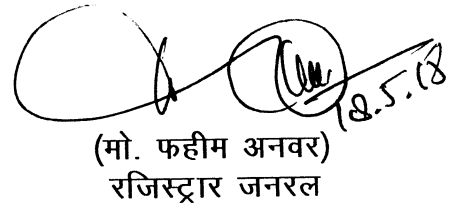 18.5.18
(मो. फहीम अनवर)
रजिस्ट्रार जनरल